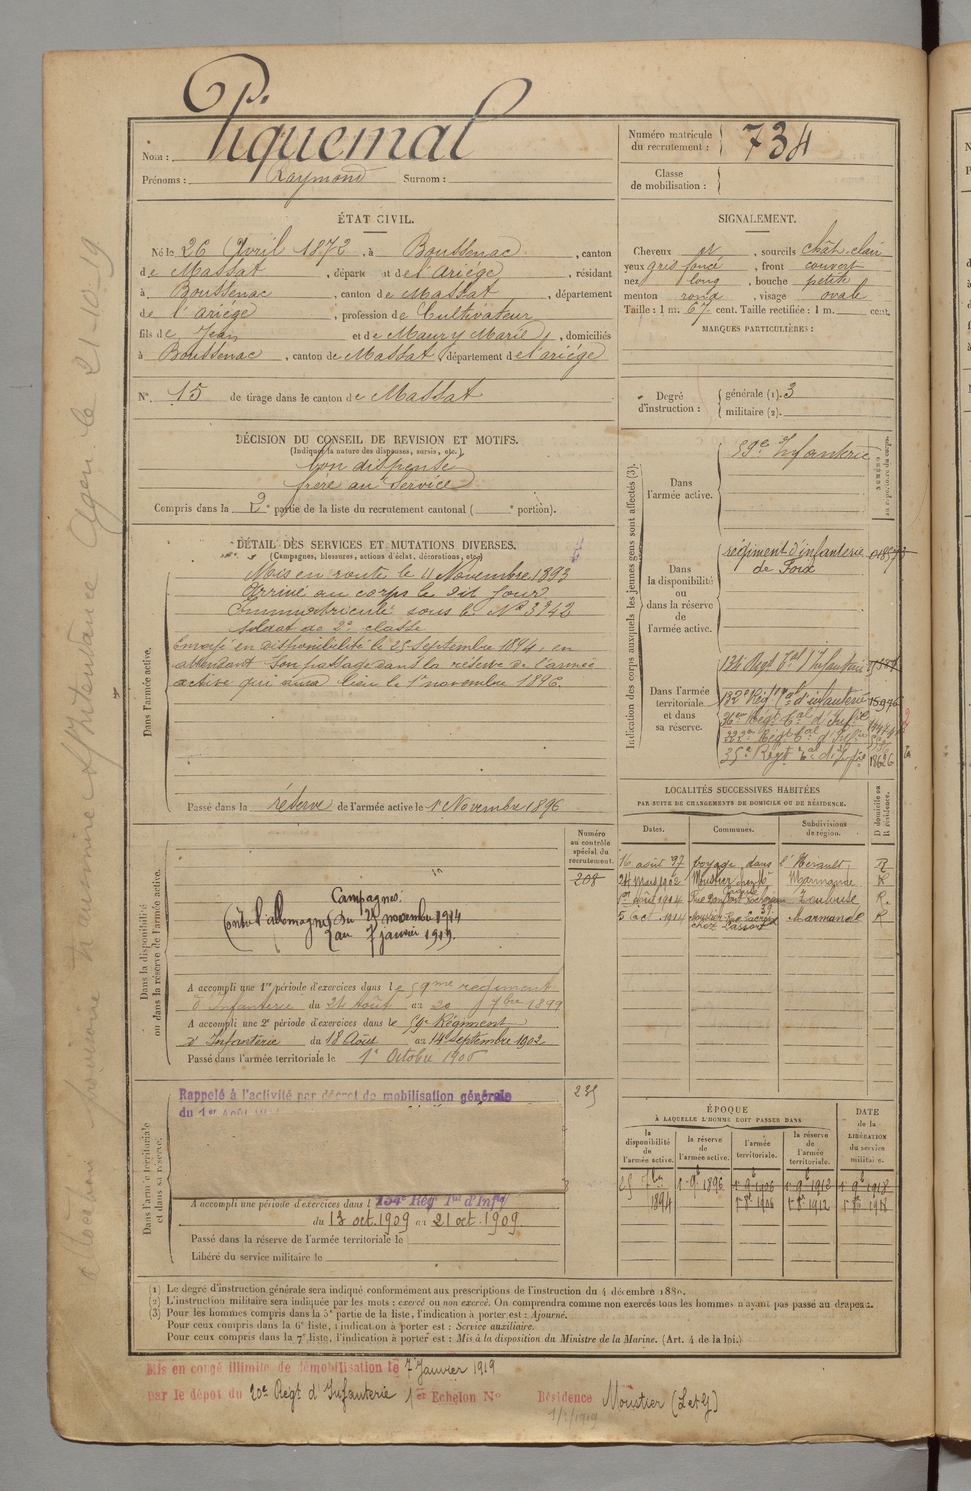 Nom : Piquemal
Prénoms : Raymond Surnom :
Numéro matricule du recrutement : 734
Classe de mobilisation :
ÉTAT CIVIL.
Né le 26 Avril 1872, à Boussenac, canton
de Massat, départe nt de l'Ariége, résidant
à Boussenac, canton de Massat, département
de l'Ariége, profession de Cultivateur
fils de Jean et de Maury Marie, domiciliés
à Boussenac, canton de Massat, département de l'ariége
N° 15 de tirage dans le canton de Massat
SIGNALEMENT.
Cheveux et, sourcils chât-clair
yeux gris foncé, front couvert
nez long, bouche petite
menton rond, visage ovale
Taille : 1 m. 67 cent. Taille rectifiée : 1 m. cent.
MARQUES PARTICULIÈRES :
Degré d'instruction : générale (1). 3
militaire (2).
DÉCISION DU CONSEIL DE REVISION ET MOTIFS.
(Indiquer la nature des dispenses, sursis, etc.)
bon dispensé
frère au service
Compris dans la 2e partie de la liste du recrutement cantonal ( e portion).
DÉTAIL DES SERVICES ET MUTATIONS DIVERSES.
(Campagnes, blessures, actions d'éclat, décorations, etc.)
Dans l'armée active.
Mis en route le 11 Novembre 1893
Arrivé au corps le dit jour
Immatriculé sous le N° 3242
Soldat de 2e classe
Envoyé en disponibilité le 25 Septembre 1894, en
attendant son passage dans la réserve de l'armée
active qui aura lieu le 1er novembre 1896.
Passé dans la réserve de l'armée active le 1er Novembre 1896
Indication des corps auxquels les jeunes gens sont affectés (3).
NUMÉRO au répertoire du corps.
Dans l'armée active.
59e Infanterie
Dans la disponibilité ou dans la réserve de l'armée active.
régiment d'infanterie
de Foix
Dans l'armée territoriale et dans sa réserve.
134 Régt Tal d'Infanterie
132e Régt Tal d'infanterie 15976
36em Régt Tal d'Infie
322e Régt Tal d'Infie
35e Régt Tal d'Infie 18626
LOCALITÉS SUCCESSIVES HABITÉES
PAR SUITE DE CHANGEMENTS DE DOMICILE OU DE RÉSIDENCE.
Dates. Communes. Subdivisions de région. D domicile ou R résidence.
16 août 97 voyage dans l'Hérault R
24 Mars 1902 Moustier Marmande R
1er Août 1914 Toulouse R.
5 Oct. 1914 Moustier Marmande R
chez Lassort
Numéro au contrôle spécial du recrutement.
208
Dans la disponibilité ou dans la réserve de l'armée active.
Campagnes.
Contre l'allemagne du 24 novembre 1914
au 7 janvier 1919.
A accompli une 1re période d'exercices dans le 59me régiment
d'Infanterie du 24 Août au 20 7bre 1899
A accompli une 2e période d'exercices dans le 59e Régiment
d'Infanterie du 18 Août au 14 Septembre 1902
Passé dans l'armée territoriale le 1er Octobre 1906
Dans l'armée territoriale et dans sa réserve.
235
Rappelé à l'activité par décret de mobilisation générale
du 1er Août
A accompli une période d'exercices dans l 134e Rég. Tal d'Infie
du 13 oct. 1909 au 21 oct. 1909
Passé dans la réserve de l'armée territoriale le
Libéré du service militaire le
ÉPOQUE
À LAQUELLE L'HOMME DOIT PASSER DANS
la disponibilité de l'armée active. la réserve de l'armée active. l'armée territoriale. la réserve de l'armée territoriale.
DATE de la LIBÉRATION du service militaire.
25 7bre 1894 1er 9b 1896 1er 9b 1906 1er 9b 1912 1er 9b 1918
1er 8b 1906 1er 8b 1912 1er 8b 1918
(1) Le degré d'instruction générale sera indiqué conformément aux prescriptions de l'instruction du 4 décembre 1889.
(2) L'instruction militaire sera indiquée par les mots : exercé ou non exercé. On comprendra comme non exercés tous les hommes n'ayant pas passé au drapeau.
(3) Pour les hommes compris dans la 5e partie de la liste, l'indication à porter est : Ajourné.
Pour ceux compris dans la 6e liste, l'indication à porter est : Service auxiliaire.
Pour ceux compris dans la 7e liste, l'indication à porter est : Mis à la disposition du Ministre de la Marine. (Art. 4 de la loi.)
Mis en congé illimité de démobilisation le 7 Janvier 1919
par le dépôt du 20e Régt d'Infanterie 1er Echelon N° Résidence Moustier (L et G)
1/1/1919
Intendance Agen le 21-10-19